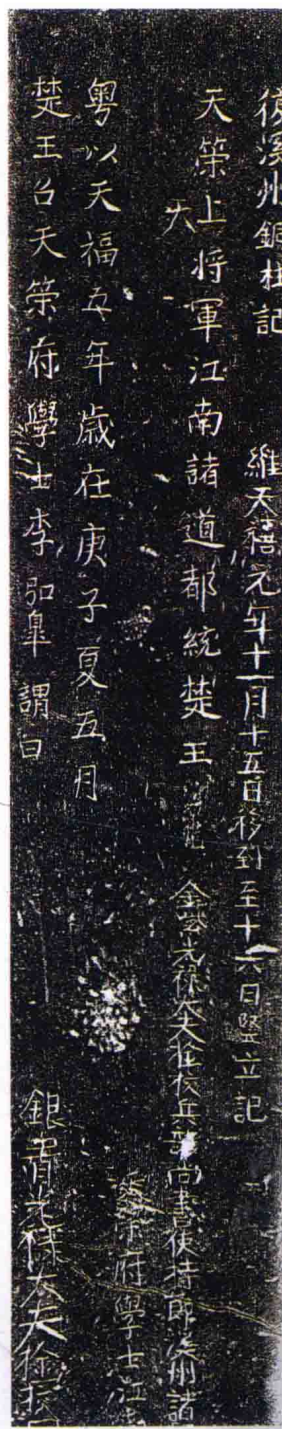 復溪州銅柱記 維天禧元年十一月十五日移到至十六日竪立記
天策上將軍江南諸道都統楚王 金紫光祿大夫檢校兵部尚書使持節溪州諸
大
粤以天福五年歲在庚子夏五月 府學士江
楚王召天策府學士李弘臯謂曰 銀青光祿大夫檢校